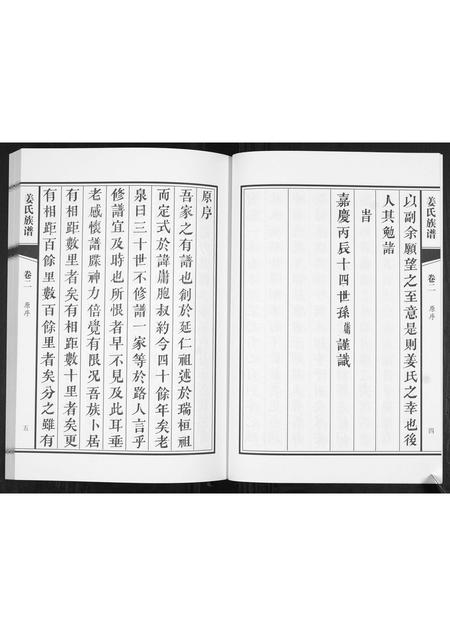 姜氏族谱
卷二
原序
四
以副余願望之至意是則姜氏之幸也後
人其勉諸
旹
嘉慶丙辰十四世孫 庸 謹識
原序
吾家之有譜也創於延仁祖述於瑞桓祖
而定式於諱庸胞叔約今四十餘年矣老
泉曰三十世不修譜一家等於路人言乎
修譜宜及時也所恨者早不見及此耳垂
老感懷譜牒神力倍覺有限况吾族卜居
有相距數里者矣有相距數十里者矣更
有相距百餘里數百餘里者矣分之雖有
姜氏族谱
卷二
原序
五